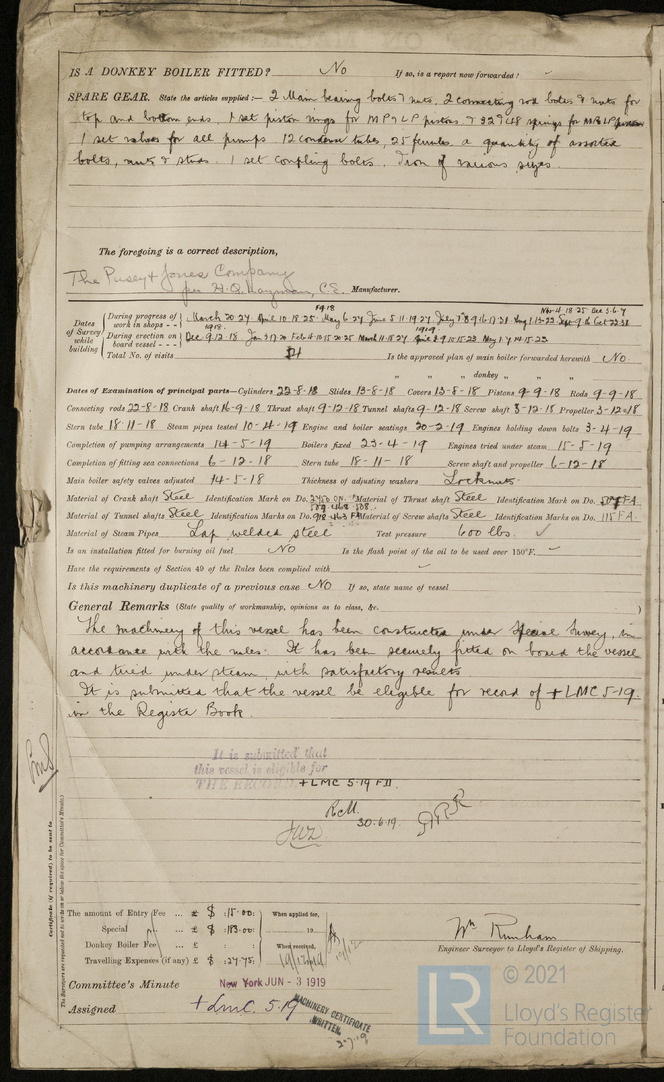 IS A DONKEY BOILER FITTED? No If so, is a report now forwarded?
SPARE GEAR. State the articles supplied:— 2 Main bearing bolts & nuts, 2 connecting rod bolts & nuts for
top and bottom ends. 1 set piston rings for MP & LP pistons & 32 & 48 springs for M & LP pistons
1 set valves for all pumps 12 condenser tubes, 25 ferrules a quantity of assorted
bolts, nuts & studs. 1 set coupling bolts. Iron of various sizes.
The foregoing is a correct description,
The Pusey & Jones Company
per H. Q. Hayman, C.E. Manufacturer.
Dates of Survey while building
During progress of work in shops - - March 20 27 April 10 18 25 May 6 27 June 5 11 19 27 July 1 8 9 16 17 31 Nov 4 18 25 Dec 3 6 7
During erection on board vessel - - - 1918 Dec 9 12 18 Jan 3 17 20 Feb 4 10 15 20 25 March 11 15 27 1919 May 1 7 14 15 23
Total No. of visits Is the approved plan of main boiler forwarded herewith No
" " " donkey " " "
Dates of Examination of principal parts—Cylinders 22-8-18 Slides 13-8-18 Covers 13-8-18 Pistons 9-9-18 Rods 9-9-18
Connecting rods 22-8-18 Crank shaft 16-9-18 Thrust shaft 9-12-18 Tunnel shafts 9-12-18 Screw shaft 3-12-18 Propeller 3-12-18
Stern tube 18-11-18 Steam pipes tested 10-4-19 Engine and boiler seatings 20-2-19 Engines holding down bolts 3-4-19
Completion of pumping arrangements 14-5-19 Boilers fixed 23-4-19 Engines tried under steam 15-5-19
Completion of fitting sea connections 6-12-18 Stern tube 18-11-18 Screw shaft and propeller 6-12-18
Main boiler safety valves adjusted 14-5-18 Thickness of adjusting washers Locknuts
Material of Crank shaft Steel Identification Mark on Do. Material of Thrust shaft Steel Identification Mark on Do. FA
Material of Tunnel shafts Steel Identification Marks on Do. Material of Screw shafts Steel Identification Marks on Do. 115 FA
Material of Steam Pipes Lap welded steel Test pressure 600 lbs.
Is an installation fitted for burning oil fuel No Is the flash point of the oil to be used over 150°F.
Have the requirements of Section 49 of the Rules been complied with
Is this machinery duplicate of a previous case No If so, state name of vessel
General Remarks (State quality of workmanship, opinions as to class, &c.)
The machinery of this vessel has been constructed under Special Survey, in
accordance with the rules. It has been securely fitted on board the vessel
and tried under steam, with satisfactory results.
It is submitted that the vessel be eligible for record of + LMC 5-19.
in the Register Book.
It is submitted that
this vessel is eligible for
THE RECORD. + LMC 5.19 F.D.
30.6.19.
Certificate (if required) to be sent to
The Surveyors are requested not to write on or below the space for Committee's Minute.
The amount of Entry Fee ... £ $ : 15.00 : When applied for,
Special ... £ $ : 183.00 : 19
Donkey Boiler Fee ... £ : : When received,
Travelling Expenses (if any) £ $ : 27.75 :
Wm Runham
Engineer Surveyor to Lloyd's Register of Shipping.
Committee's Minute New York JUN - 3 1919
Assigned + LMC 5.19
MACHINERY CERTIFICATE
WRITTEN.
2.7.19
LR © 2021
Lloyd's Register
Foundation